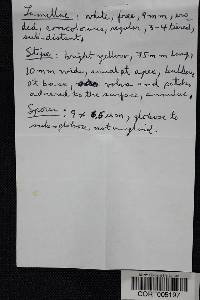 Lamellae: white, free, 9 mm, ero
ded, concolourous, regular, 3-4 tiered,
sub-distant.
Stipe: bright yellow, 75 mm long,
10 mm wide, small at apex, bulbous
at base, volva and patches
adnered to the surface, annular.
Spores: 9 x 6,5 um, globose to
sub-globose, not amyloid.
CORT005197